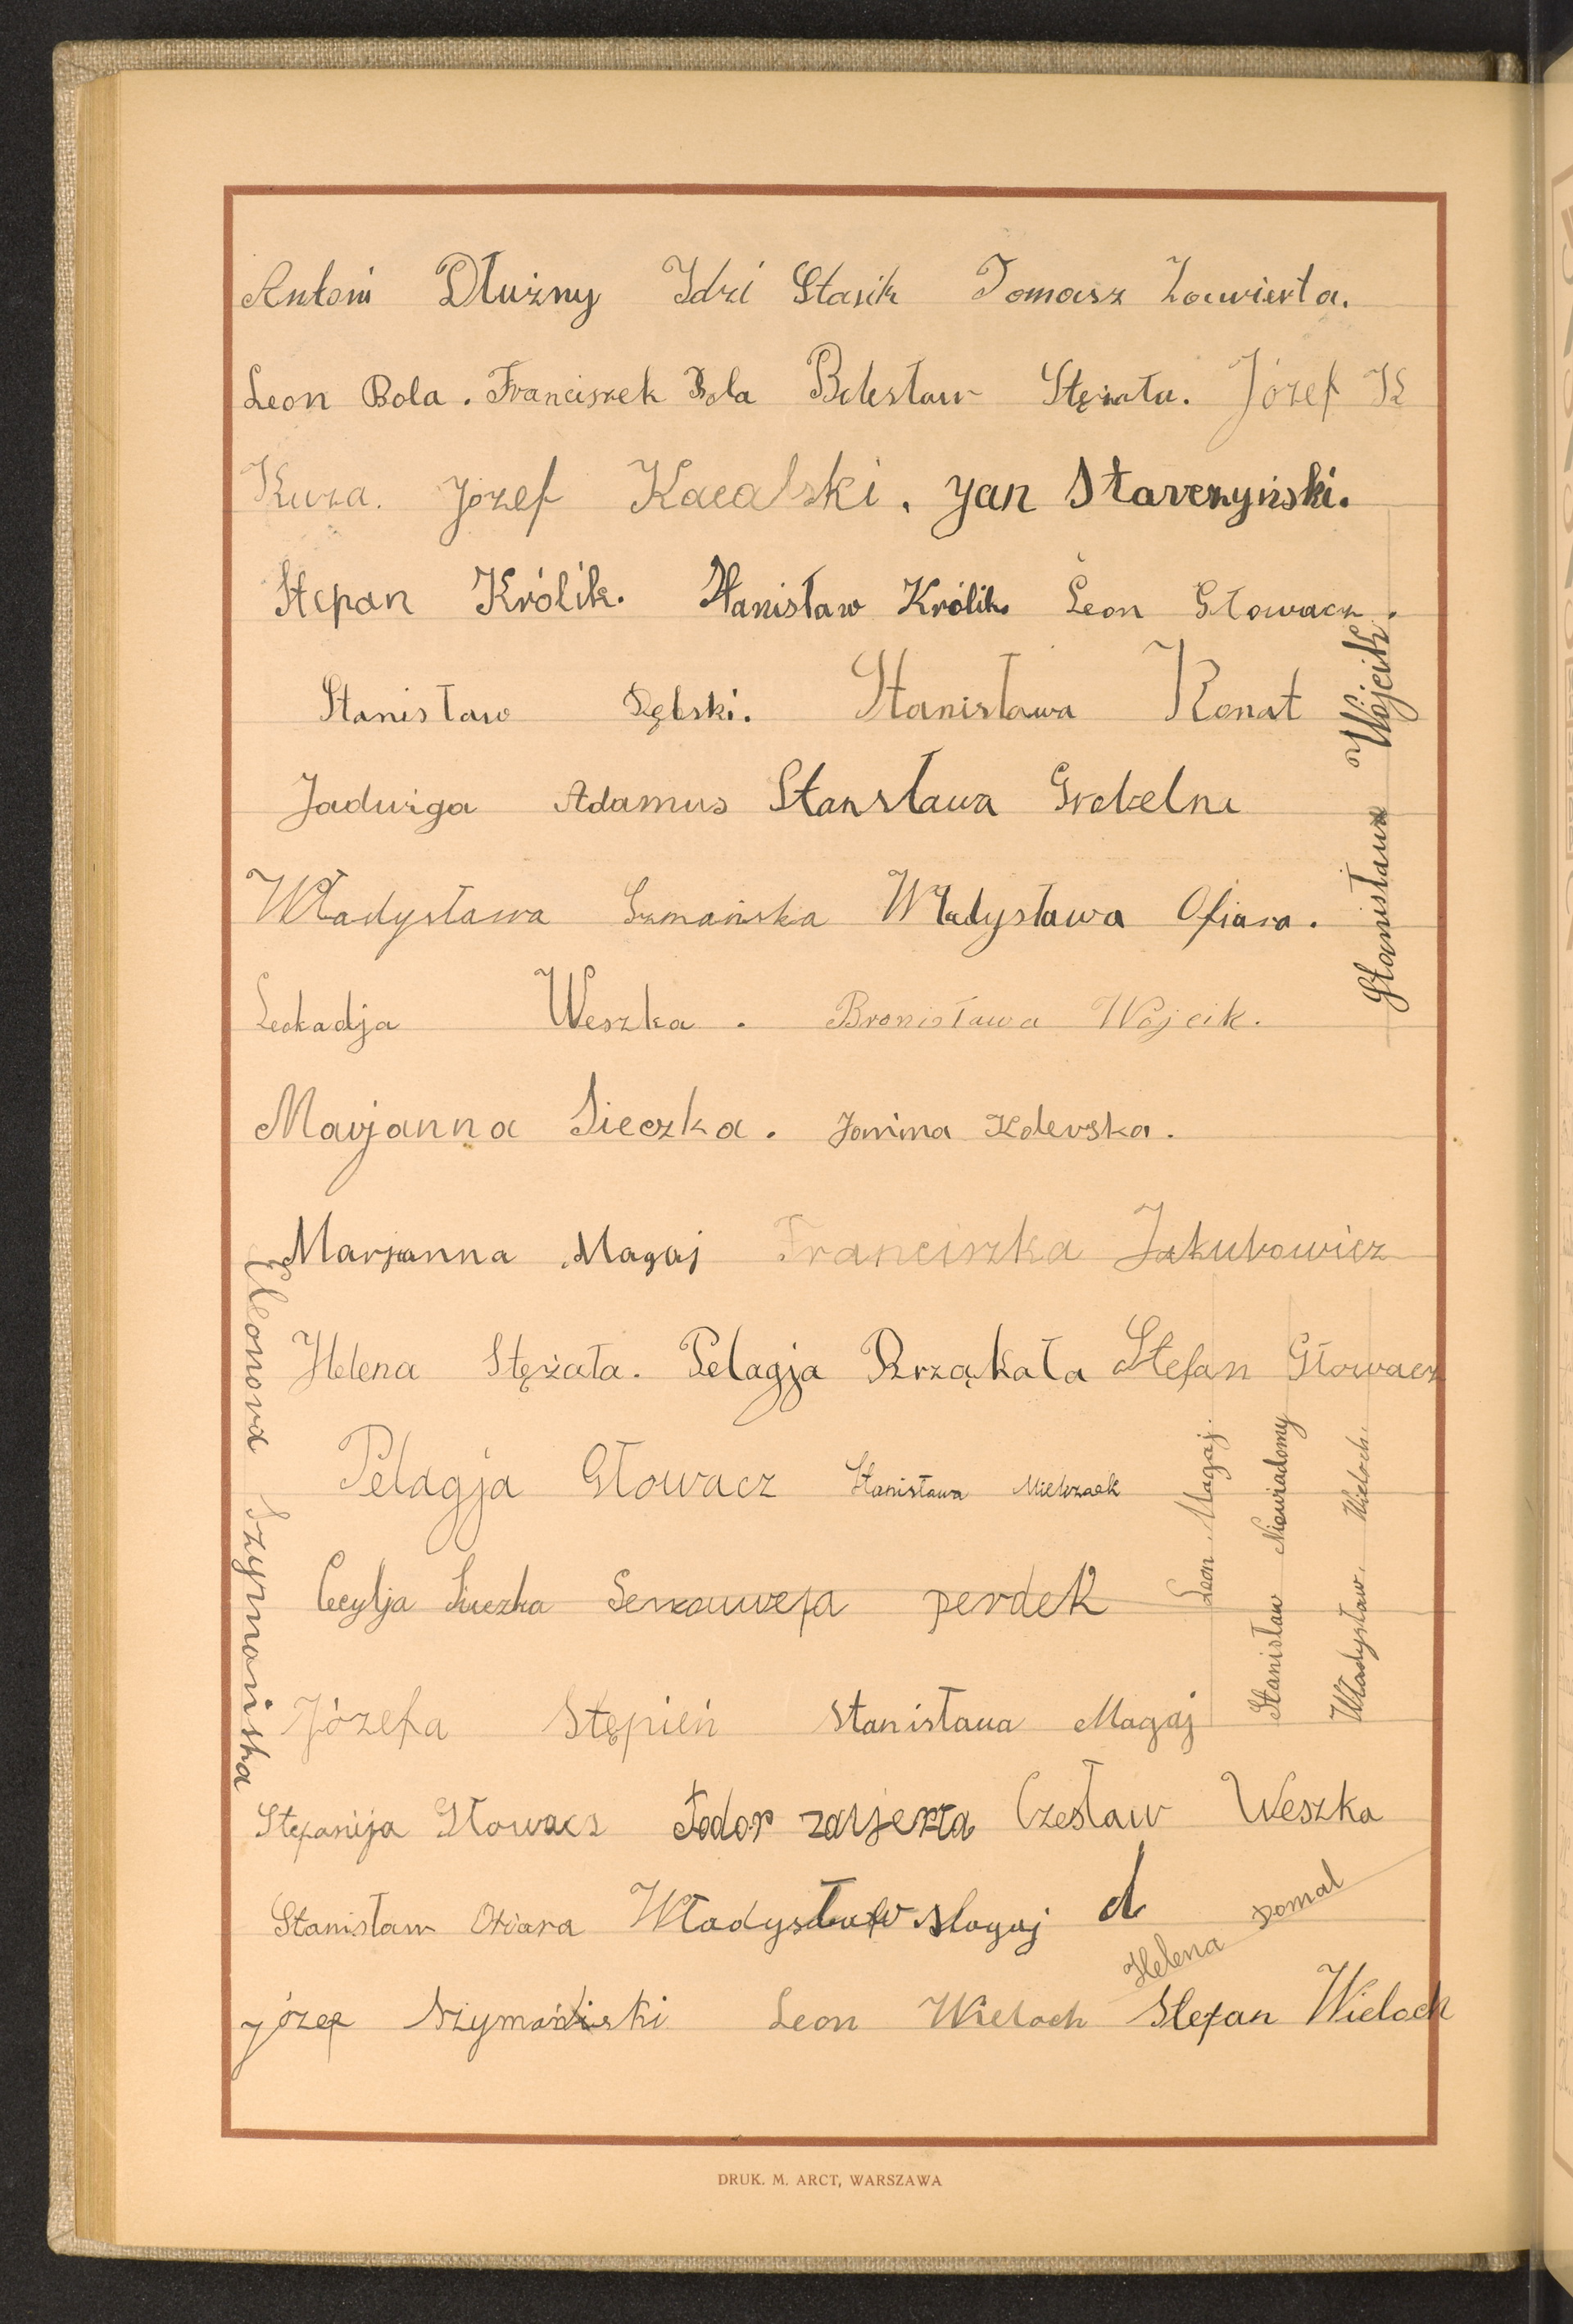 Antoni Dłużny Idzi Stasik Tomasz Zawierta.
Leon Bola. Franciszek Bola Bolesław Stężała. Józef K
Kuza. Józef Kacalski. Jan Starczyński.
Stepan Królik. Stanisław Królik. Leon Głowacz.
Stanisław Dębski. Stanisława Konat
Stanisława Wójcik
Jadwiga Adamus Stansława Grobelna
Władysława Szmańska Władysława Ofiara.
Leokadja Weszka. Bronisława Wójcik.
Marjanna Sieczka. Janina Kolerska.
Marjanna Magaj Franciszka Jakubowicz
Eleonora Szymańska
Helena Stężała. Pelagja Brząkała Stefan Głowacz
Pelagja Głowacz Stanisława Mielczaek
Leon Magaj.
Stanisław Niewiadomy
Władysław Wieloch.
Cecylja Sieczka perdek
Józefa Stępień Stanisława Magaj
Stefanija Głowacz Czesław Weszka
Stanisław Ofiara Władysław Magaj d
Helena Domal
Józef Szymański Leon Wieloch Stefan Wieloch
DRUK. M. ARCT, WARSZAWA